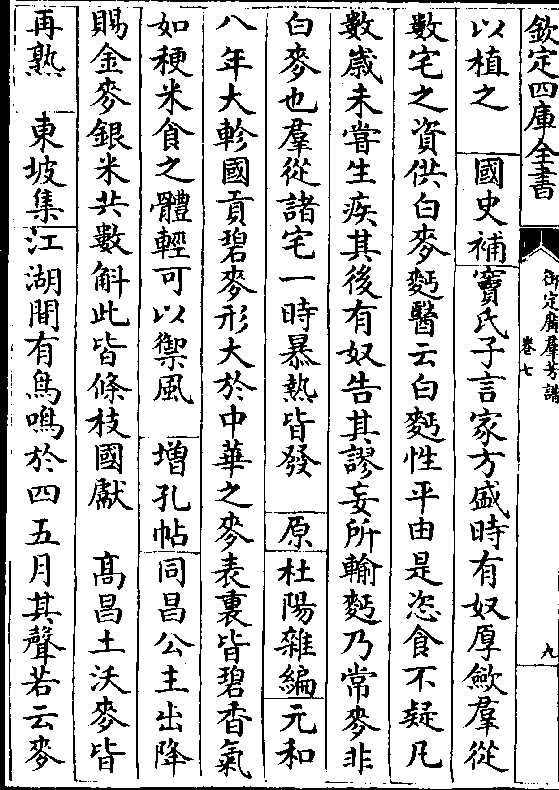 欽定四庫全書
御定廣羣芳譜
卷七
九
以植之 國史補竇氏子言家方盛時有奴厚斂羣從
數宅之資供白麥麪醫云白麪性平由是恣食不疑凡
數歳未嘗生疾其後有奴告其謬妄所輸麪乃常麥非
白麥也羣從諸宅一時暴熱皆發 原杜陽雜編元和
八年大軫國貢碧麥形大於中華之麥表裏皆碧香氣
如稉米食之體輕可以禦風 增孔帖同昌公主出降
賜金麥銀米共數斛此皆條枝國獻 髙昌土沃麥皆
再熟 東坡集江湖間有鳥鳴於四五月其聲若云麥